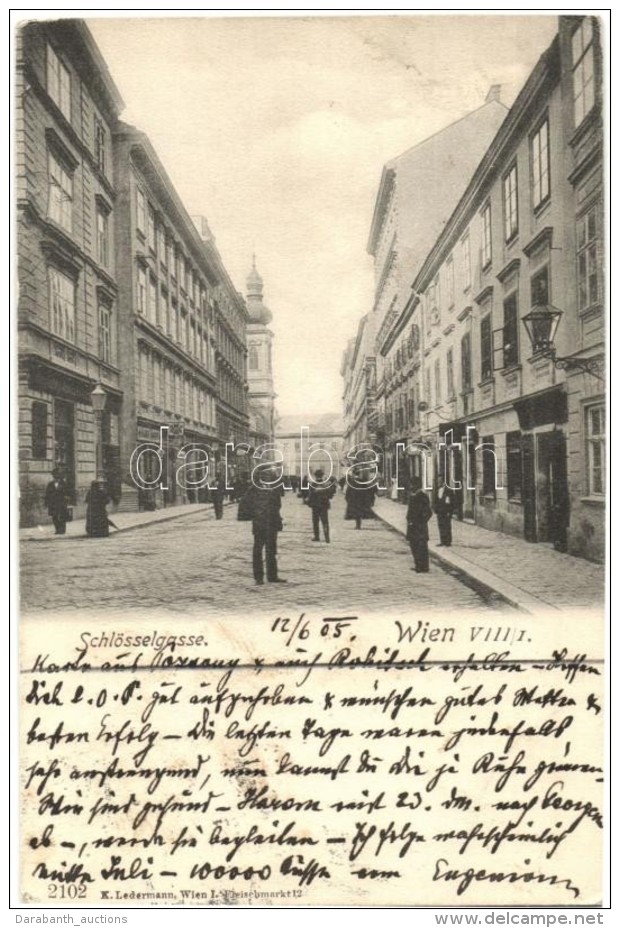 darabanth
Schlösselgasse.
12/6 05.
Wien VIII/1.
Karte aus & auch erhalten – Hoffen
gut aufgehoben & wünschen gutes Wetter &
besten Erfolg – Die letzten Tage waren jedenfalls
sehr anstrengend, nun kannst Du Dir ja Ruhe gönnen
Wir sind gesund – reist 23. ds. nach
ab –, werde sie begleiten – Ich folge wahrscheinlich
mitte Juli – 100000 Küsse
2102
K. Ledermann, Wien I. Fleischmarkt 12
Darabanth_auctions
http://www.delcampe.net